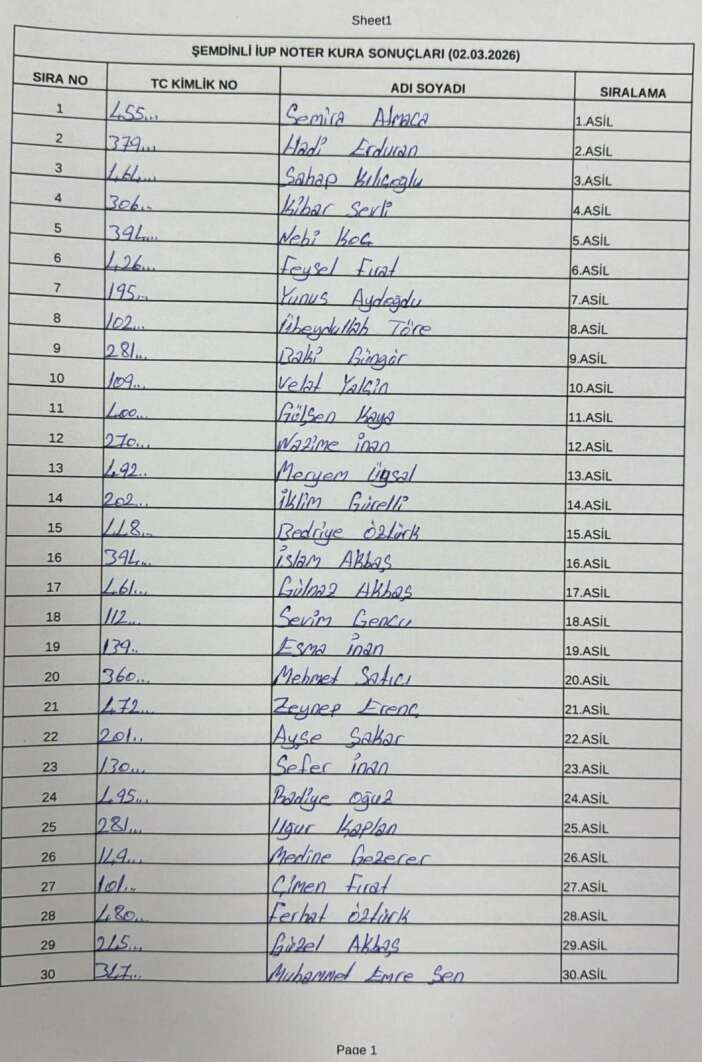 Sheet1
ŞEMDİNLİ İUP NOTER KURA SONUÇLARI (02.03.2026)
SIRA NO TC KİMLİK NO ADI SOYADI SIRALAMA
1 455... Semira Atmaca 1.ASİL
2 379... Hadi Erduran 2.ASİL
3 461.... Sahap Kılıçoğlu 3.ASİL
4 306.. Kibar Sevli 4.ASİL
5 394... Nebi Koç 5.ASİL
6 426... Feysel Fırat 6.ASİL
7 195.. Yunus Aydoğdu 7.ASİL
8 102... Übeydullah Töre 8.ASİL
9 281... Baki Güngör 9.ASİL
10 109... Velat Yalçin 10.ASİL
11 400... Gülşen Kaya 11.ASİL
12 270... Nazime İnan 12.ASİL
13 492.. Meryem 13.ASİL
14 202... İklim Gürelli 14.ASİL
15 448... Bedriye Öztürk 15.ASİL
16 394... İslam Akbaş 16.ASİL
17 461... Gülnaz Akbaş 17.ASİL
18 112... Sevim Gencu 18.ASİL
19 139.. Esma İnan 19.ASİL
20 360... Mehmet Satıcı 20.ASİL
21 472... Zeynep Erenç 21.ASİL
22 201.. Ayşe Şakar 22.ASİL
23 130... Sefer İnan 23.ASİL
24 495... Badiye Oğuz 24.ASİL
25 281... Uğur Kaplan 25.ASİL
26 149... Medine Gezerer 26.ASİL
27 101... Çimen Fırat 27.ASİL
28 480... Ferhat Öztürk 28.ASİL
29 245... Güzel Akbaş 29.ASİL
30 347... Muhammet Emre Şen 30.ASİL
Page 1